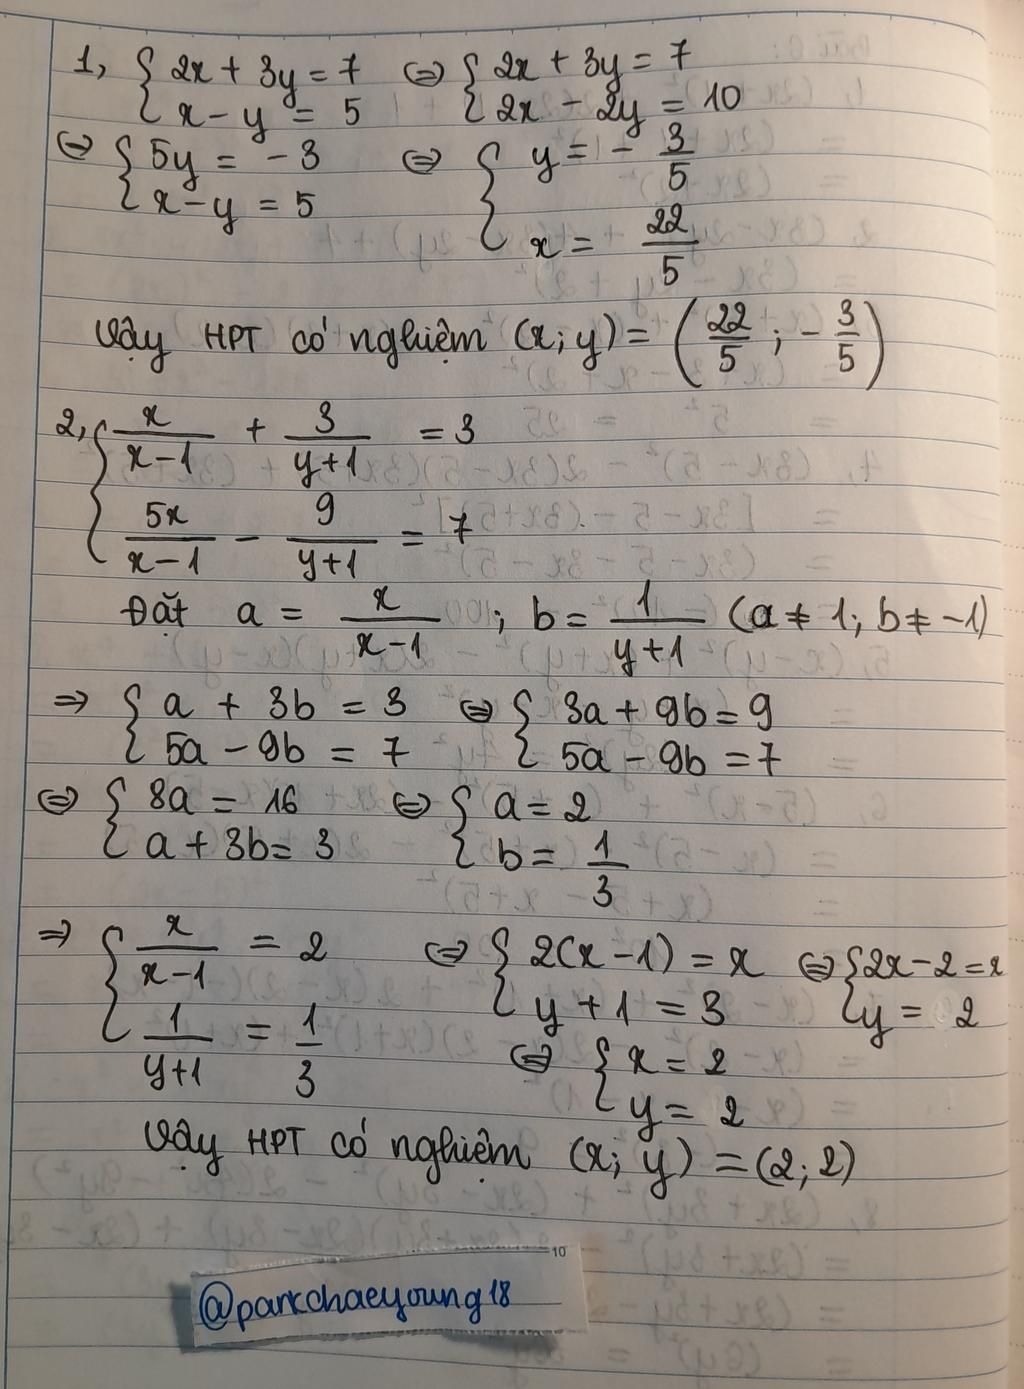 1, { 2x + 3y = 7 ⇔ { 2x + 3y = 7
x - y = 5 2x - 2y = 10
⇔ { 5y = -3 ⇔ { y = - 3/5
x - y = 5
x = 22/5
Vậy HPT có nghiệm (x; y) = (22/5 ; - 3/5)
2, { x/(x-1) + 3/(y+1) = 3
5x/(x-1) - 9/(y+1) = 7
Đặt a = x/(x-1) ; b = 1/(y+1) (a ≠ 1; b ≠ -1)
⇒ { a + 3b = 3 ⇔ { 3a + 9b = 9
5a - 9b = 7 5a - 9b = 7
⇔ { 8a = 16 ⇔ { a = 2
a + 3b = 3 b = 1/3
⇒ { x/(x-1) = 2 ⇔ { 2(x - 1) = x ⇔ { 2x - 2 = x
1/(y+1) = 1/3 y + 1 = 3 y = 2
⇔ { x = 2
y = 2
Vậy HPT có nghiệm (x; y) = (2; 2)
10
@parkchaeyoung18